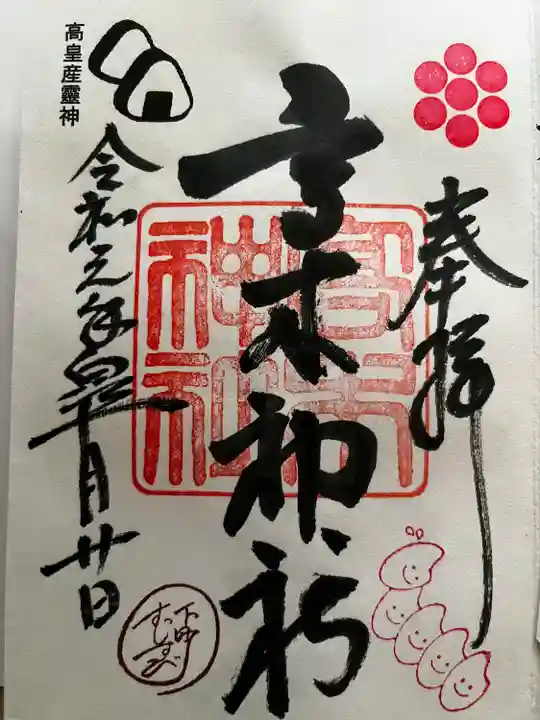 奉拝
高木神社
高木神社
高皇産靈神
令和元年皐月廿日